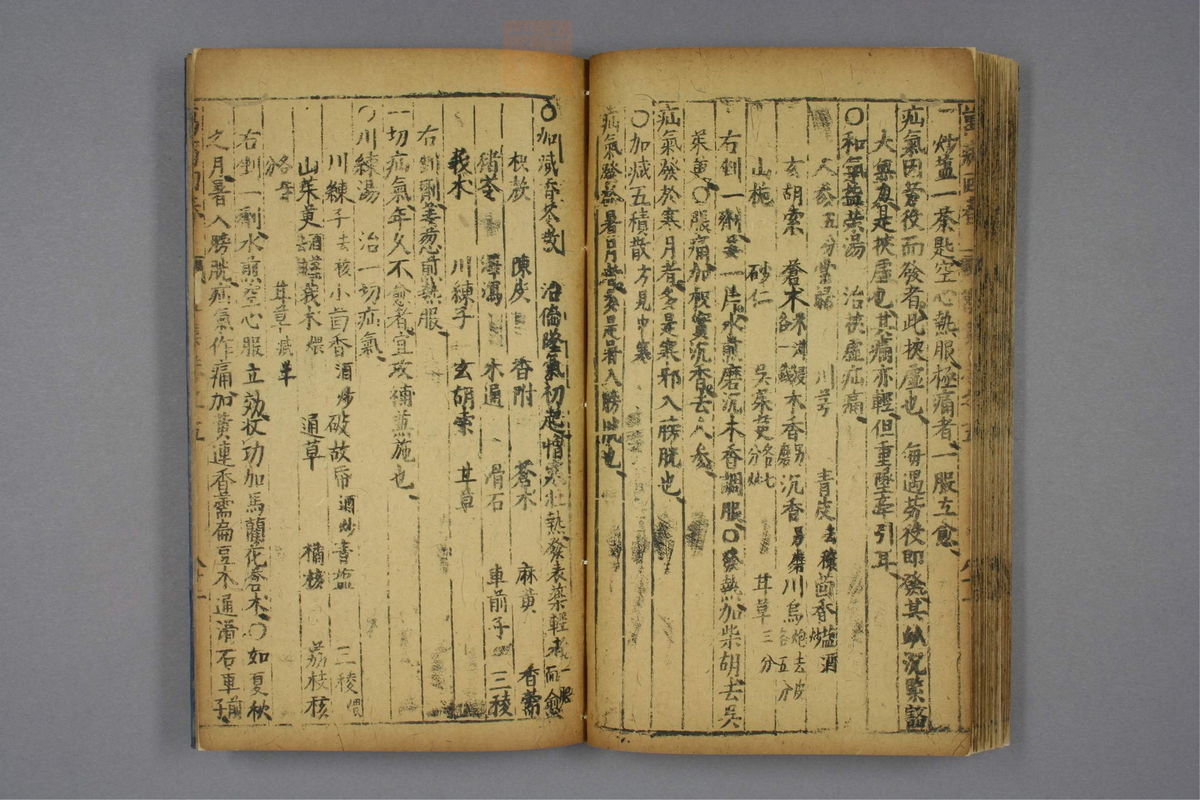 一炒盐一茶匙空心熱服極痛者一服立愈
疝氣因勞役而發者此挾虛也 每遇勞役即發其脉沉緊豁
大無力者是挾虛也其痛亦輕但重墜牽引耳
〇和氣益榮湯 治挾虛疝痛
人參五分 川芎 青皮去穰茴香盐酒炒
玄胡索 蒼木米泔浸各一錢木香另磨沉香另磨川烏炮去皮各五分
山梔 砂仁 吳茱萸各七分 甘草三分
右剉一劑姜一片水煎磨沉木香調服〇發熱加柴胡去吳
茱萸〇脹痛加枳實沉香去人參
疝氣發於寒月者多是寒邪入膀胱也
〇加減五積散方見中寒
疝氣發於暑月者多是暑入膀胱也
〇加減香苓散 治偏墜氣初起憎寒壯熱發表藥輕者一服而愈
枳殼 陳皮 香附 蒼木 麻黄 香薷
豬苓 澤瀉 木通 滑石 車前子 三稜
莪木 川練子 玄胡索 甘草
右剉劑姜葱煎熱服
一切疝氣年久不愈者宜攻補兼施也
〇川練湯 治一切疝氣
川練子去核小茴香酒炒破故帋酒炒青盐 三稜煨
山茱萸酒莪木煨 通草 橘核 荔枝核
各等分 甘草减半
右剉一劑水煎空心服立効收功加馬蘭花蒼木〇如夏秋
之月暑入膀胱疝氣作痛加黄連香薷扁豆木通滑石車前子